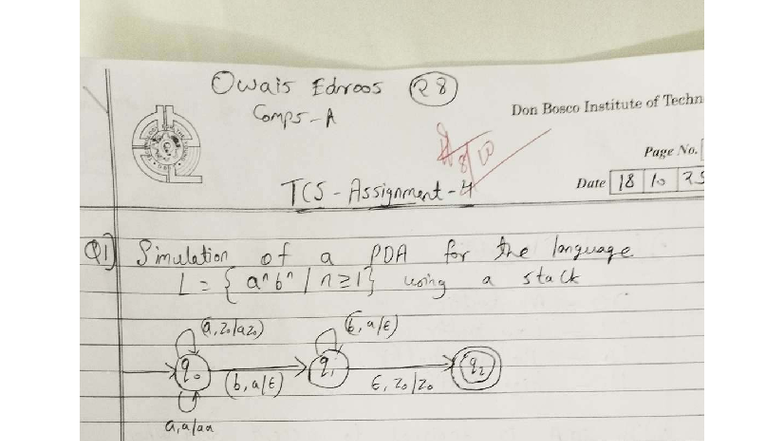 Owais Edroos 28
Comps-A
Don Bosco Institute of Techn
8/10
Page No.
TCS - Assignment - 4
Date 18 10 25
Q1] Simulation of a PDA for the language
L = { aⁿbⁿ / n ≥ 1} using a stack
(a, z₀/az₀) (b, a/ε)
q₀ (b, a/ε) q₁ ε, z₀/z₀ q₂
a, a/aa